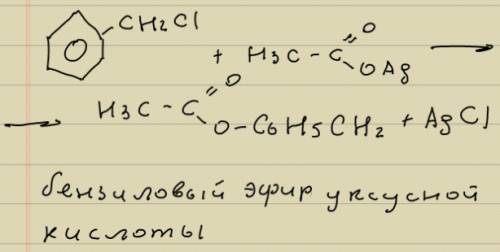 CH2Cl
+ H3C - C = O
O Ag
H3C - C = O
O - C6H5CH2 + AgCl
бензиловый эфир уксусной
кислоты